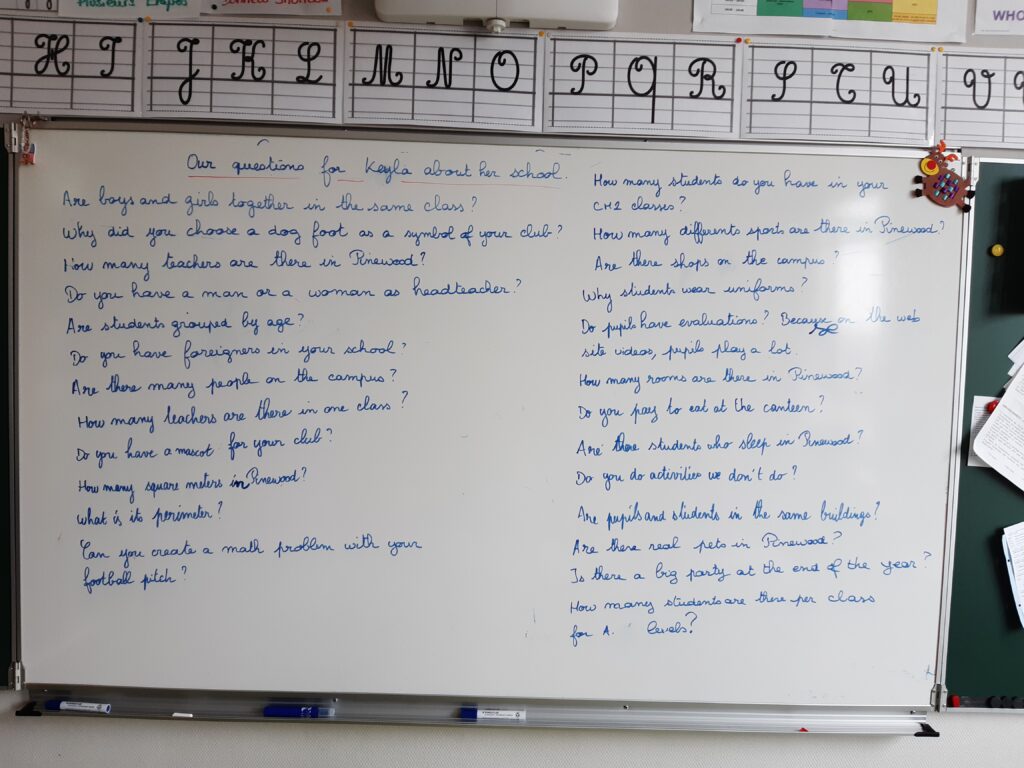 WHO
H I J K L M N O P Q R S T U V
Our questions for Keyla about her school.
Are boys and girls together in the same class?
Why did you choose a dog foot as a symbol of your club?
How many teachers are there in Pinewood?
Do you have a man or a woman as headteacher?
Are students grouped by age?
Do you have foreigners in your school?
Are there many people on the campus?
How many teachers are there in one class?
Do you have a mascot for your club?
How many square meters in Pinewood?
What is its perimeter?
Can you create a math problem with your
football pitch?
How many students do you have in your
CM2 classes?
How many differents sports are there in Pinewood?
Are there shops on the campus?
Why students wear uniforms?
Do pupils have evaluations? Because on the web
site videos, pupils play a lot.
How many rooms are there in Pinewood?
Do you pay to eat at the canteen?
Are there students who sleep in Pinewood?
Do you do activities we don't do?
Are pupils and students in the same buildings?
Are there real pets in Pinewood?
Is there a big party at the end of the year?
How many students are there per class
for A. levels?